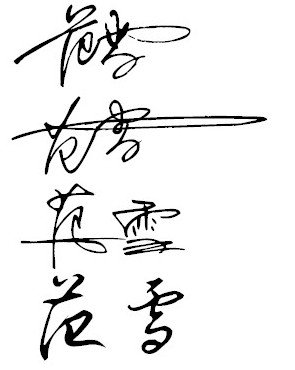 范雪
范雪
范雪
范雪